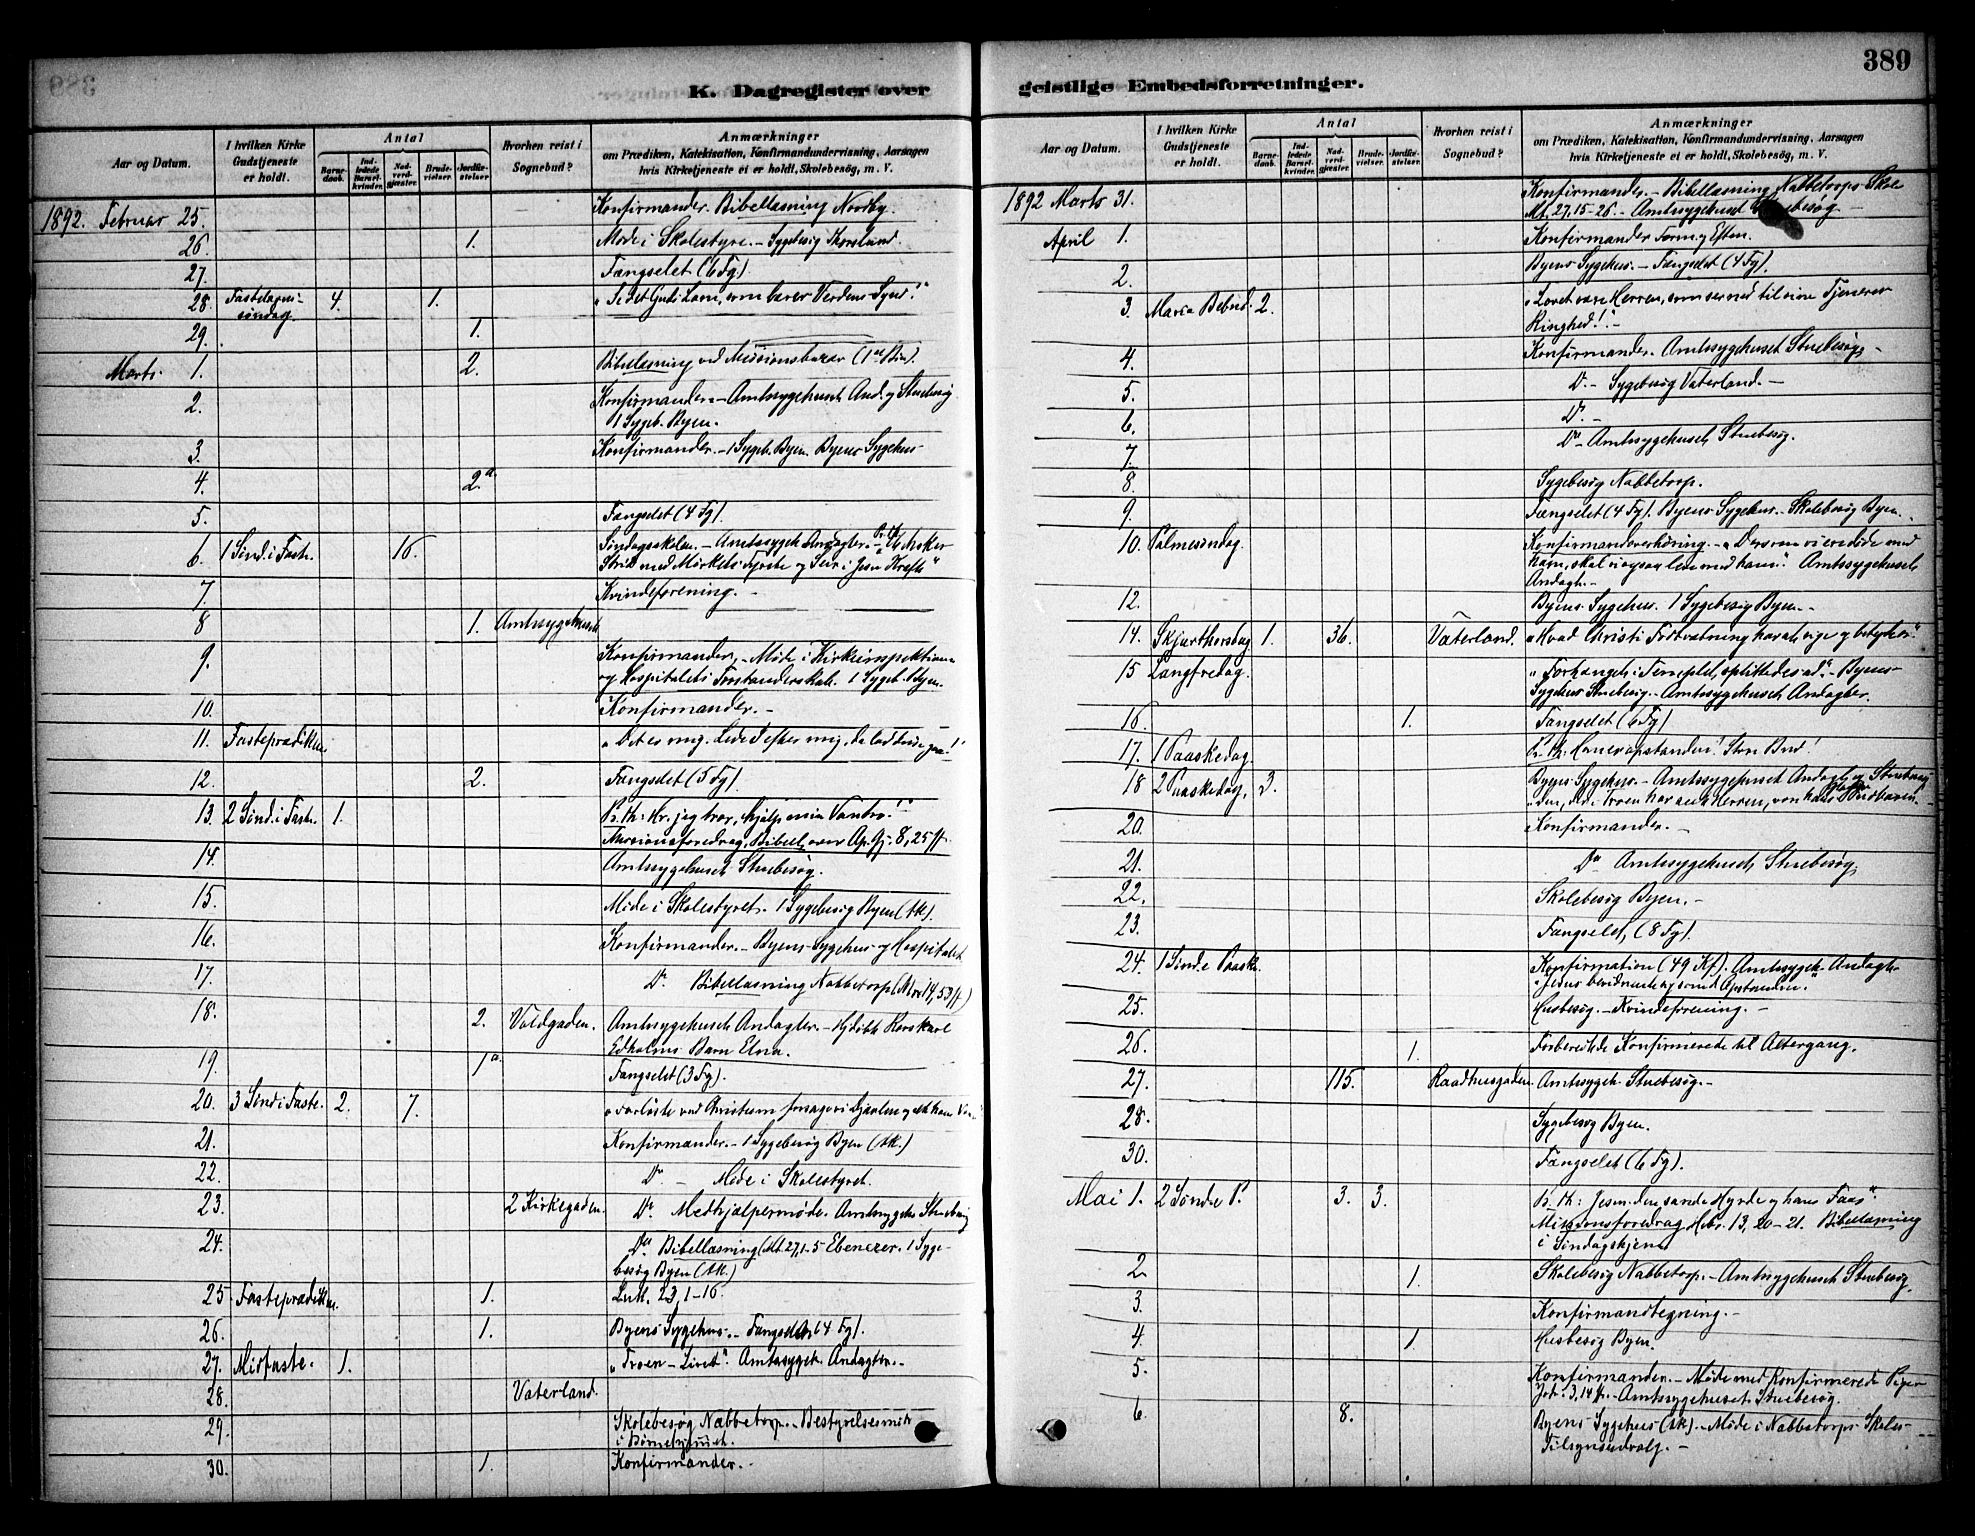 389
K. Dagregister over
geistlige Embedsforretninger.
Aar og Datum.
I hvilken Kirke Gudstjeneste er holdt.
Antal
Barnedaab.
Indledede Barselkvinder.
Nadverdgjæster.
Brudevielser.
Jordfæstelser.
Hvorhen reist i Sognebud?
Anmærkninger
om Prædiken, Katekisation, Konfirmandundervisning, Aarsagen
hvis Kirketjeneste ei er holdt, Skolebesøg, m. V.
1892. Februar 25. Konfirmander. Bibellæsning Norrby.
26. 1. Møde i Skolestyre. - Sygebesøg Thorslund.
27. Fængselet (6 Fg).
28. Fastelavns- 4. 1. "Se det Guds Lam, som bærer Verdens Synd!"
søndag.
29. 1.
Marts. 1. 2. Bibellæsning ved Missionsbazar
2. Konfirmander. - Amtssygehuset And. og Stuebesøg
1 Sygeb. Byen.
3. Konfirmander. - 1 Sygeb. Byen. Byens Sygehus -
4. 2a.
5. Fængselet (4 Fg).
6. 1 Sønd. i Faste. 16. Søndagsskolen. - Amtssygeh. Andagter. -
Strid med Mørkets Fyrste og Seir i Jesu Kraft"
7. Kvindeforening. -
8 1. Amtssygehuset
9. Konfirmander. - Møde i Kirkeinspektionen
og Hospitalets Forstanderskab. 1 Sygeb. Byen.
10. Konfirmander. -
11. Fasteprædiken. "Det er mig. Lede I efter mig, da lad disse gaa!"
12. 2. Fængselet (5 Fg).
13. 2 Sønd. i Faste. 1. Hr. jeg tror, hjælp min Vantro!"
Missionsforedrag, Bibell. over Ap. Gj. 8, 25 ff.
14. Amtssygehuset Stuebesøg.
15. Møde i Skolestyret. 1 Sygebesøg Byen (Ak).
16. Konfirmander. - Byens Sygehus og Hospitalet
17. Do. Bibellæsning Nabbetorp (Mrc 14, 53 ff)
18. 2. Voldgaden. Amtssygehuset Andagter. -
Edholms Barn Elna.
19. 1a. Fængselet (3 Fg).
20. 3 Sønd i Faste. 2. 7.
21. Konfirmander. - 1 Sygebesøg Byen (Ak.)
22. Do - Møde i Skolestyret.
23. 2 Kirkegaden. Do. Medhjælpermøde. Amtssygehs Stuebesøg
24. Do Bibellæsning (Mt. 27, 1-5 Ebenezer. 1 Syge-
besøg Byen (Ak.)
25 Fasteprædiken. 1. Luk. 23, 1-16.
26. 1. Byens Sygehus. - Fængselet (4 Fg).
27. Midfaste. 1. "Troen - Livet". Amtssygeh. Andagter. -
28. Vaterland.
29. Skolebesøg Nabbetorp. - Bestyrelsesmøde
i Børnehjemmet.
30. 1. Konfirmander. -
Aar og Datum.
I hvilken Kirke Gudstjeneste er holdt.
Antal
Barnedaab.
Indledede Barselkvinder.
Nadverdgjæster.
Brudevielser.
Jordfæstelser.
Hvorhen reist i Sognebud?
Anmærkninger
om Prædiken, Katekisation, Konfirmandundervisning, Aarsagen
hvis Kirketjeneste ei er holdt, Skolebesøg, m. V.
1892 Marts 31. Konfirmander. - Bibellæsning Nabbetorps Skole
Mt. 27, 15-26. - Amtssygehuset Stuebesøg -
April 1. Konfirmander Form. og Efterm.
2. Byens Sygehus. - Fængselet (4 Fg).
3. Maria Bebud. 2. "Lovet være Herren, som ser ned til sine Tjeneres
Ringhed!" -
4. Konfirmander. Amtssygehuset Stuebesøg. -
5. Do. - Sygebesøg Vaterland. -
6. Do -
7. Do - Amtssygehuset Stuebesøg.
8. Sygebesøg Nabbetorp.
9. Fængselet (4 Fg). Byens Sygehus. - Skolebesøg Byen.
10. Palmesøndag. Konfirmandoverhøring. - "Dersom vi ere døde med
ham, skal vi ogsaa leve med ham". Amtssygehuset
Andagt. -
12. Byens Sygehus. 1 Sygebesøg Byen. -
14. Skjærthorsdag 1. 36. Vaterland. "Hvad Christi Fodtvætning har at sige og betyder".
15 Langfredag. "Forhænget i Templet splittedes ad". - Byens
Sygehus Stuebesøg. - Amtssygehuset Andagter.
16 1. Fængselet (6 Fg)
17. 1 Paaskedag.
18 2 Paaskedag. 3. Byens Sygehus. - Amtssygehuset Andagt og Stuebesøg
20. Konfirmander. -
21. Do Amtssygehuset Stuebesøg,
22. Skolebesøg Byen. -
23. Fængselet, (8 Fg).
24. 1 Sønd. e Paaske. Konfirmation (49 Kf). Amtssygeh. Andagt.
25. Husbesøg. - Kvindeforening. -
26. 1. Forberedte Konfirmerede til Altergang.
27. 115. Raadhusgaden. Amtssygeh. Stuebesøg. -
28. Sygebesøg Byen.
30. Fængselet (6 Fg).
Mai 1. 2 Sønd e P. 3. 3. Jesus den sande Hyrde og hans Faar".
Missionsforedrag Hebr. 13, 20-21. Bibellæsning
i Søndagshjem
2 1. Skolebesøg Nabbetorp. - Amtssygehuset Stuebesøg.
3. Konfirmandtegning. -
4. 1 Husbesøg Byen.
5. Konfirmander. - Møde med Konfirmerede Piger
Joh. 3, 14 ff. - Amtssygehuset Stuebesøg.
6. 8. Byens Sygehus (Ak). - Møde i Nabbetorps Skoles
Tilsynsudvalg. -